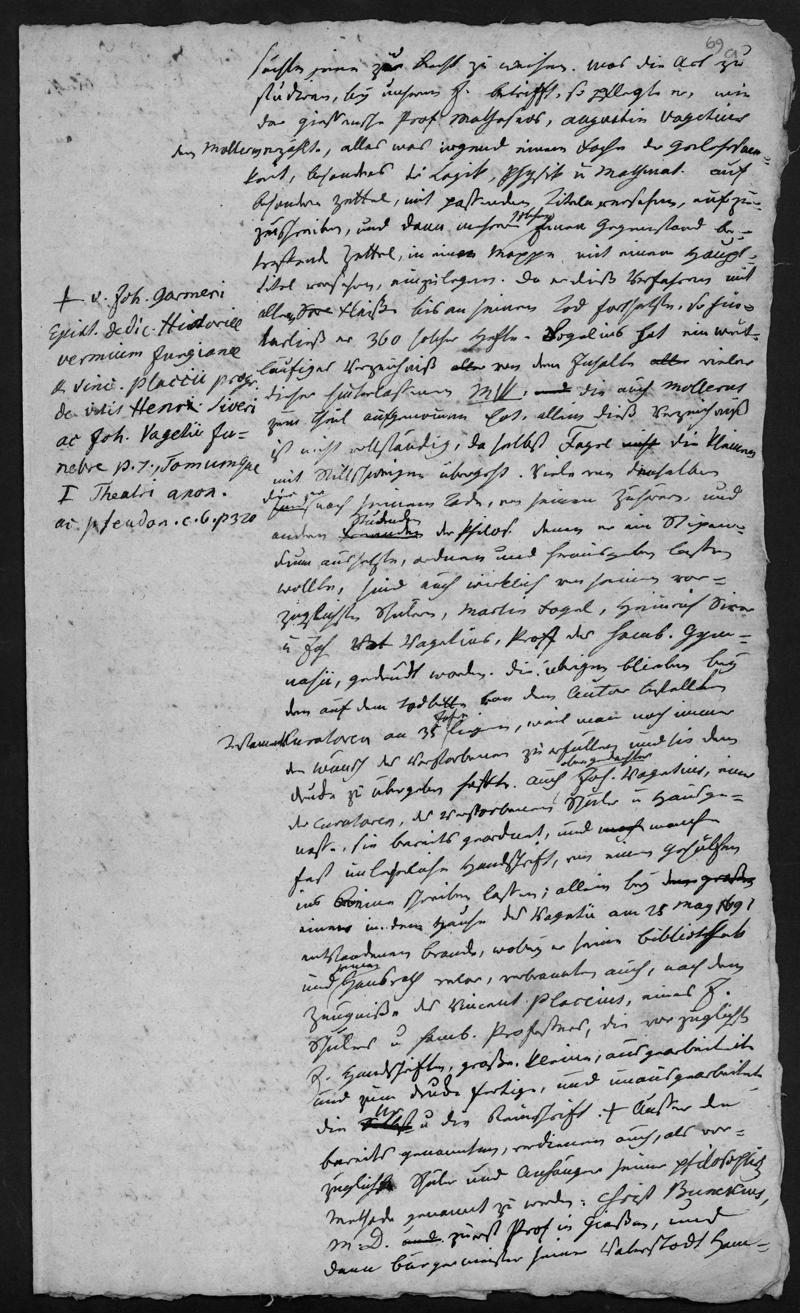 69 a
suchten jene zur Last zu machen. Was die Art zu
studiren, bey unserm J. betrifft, so pflegte er, wie
der giessensche Prof Matheseos, Augustin Vagetius
dem Mollerus erzählte, alles was irgend einem Fache der Gelehrsam-
keit, besonders die Logik, Physik u Mathemat. auf
besondere Zettel, mit passenden Titeln versehen, aufzu-
zuschreiben, und dann mehrere solcher einen Gegenstand be-
treffende Zettel, in eine Mappe mit einem Haupt-
titel versehen, einzulegen. Da er dieß Verfahren mit
allem Fleiße bis an seinen Tod fortsetzte, so hin-
terließ er 360 solcher Hefte. Vogelius hat ein weit-
läufiges Verzeichniß von dem Inhalte vieler
dieser hinterlassenen MSS, die auch Mollerus
zum Theil aufgenommen hat, allein dieß Verzeichniß
ist nicht vollständig, da selbst Fogel die kleinen
mit Stillschweigen übergeht. Viele von denselben
die er nach seinem Tode, von seinen Zuhörern und
andern Studenten der Philos. denen er ein Stipen-
dium aussetzte, ordnen und herausgeben lassen
wollte, sind auch wirklich von seinen vor-
züglichsten Schülern, Martin Fogel, Heinrich Siver
u Joh Vagetius, Proff des Hamb. Gym-
nasii, gedruckt worden. Die übrigen blieben bey
den auf dem Todbette von dem Autor bestellten
Testaments Curatoren an 35 Jahr liegen, weil man noch immer
den Wunsch des Verstorbenen zu erfüllen und sie dem
Drucke zu übergeben hoffte. Auch obengedachter Joh. Vagetius, einer
der Curatoren, des Verstorbenen Schüler u Hausge-
nosse, sie bereits geordnet, und manche
fast unleserliche Handschrift, von einem Gehülfen
ins Reine schreiben lassen; allein bey
einem in dem Hause des Vagetii am 25 May 1691
entstandenen Brande, wobey er seine Bibliothek
und seinen Hausrath verlor, verbrannten auch, nach dem
Zeugniße des Vincent Placcius, eines J.
Schülers u Hamb. Professors, die vorzüglichsten
J. Handschriften, große u. kleine, ausgearbeitete
und zum Drucke fertige, und unausgearbeitete
die u die Reinschrift. + Ausser den
bereits genannten, verdienen auch, als vor-
zügliche Schüler und Anhänger seiner philosophischen
Methode genannt zu werden: Christ Bunckius,
M. D. zuerst Prof in Gießen, und
dann Bürgermeister seiner Vaterstadt Ham-
+ v. Joh. Garmeri
Epist. dedic. Historiae
vermium Jungianae
& Vinc. Placcii progr.
de vitis Henr. Siveri
ac Joh. Vagetii fu-
nebre p. 7. Tomumque
I Theatri anon.
ac pseudon. c. 6. p 320